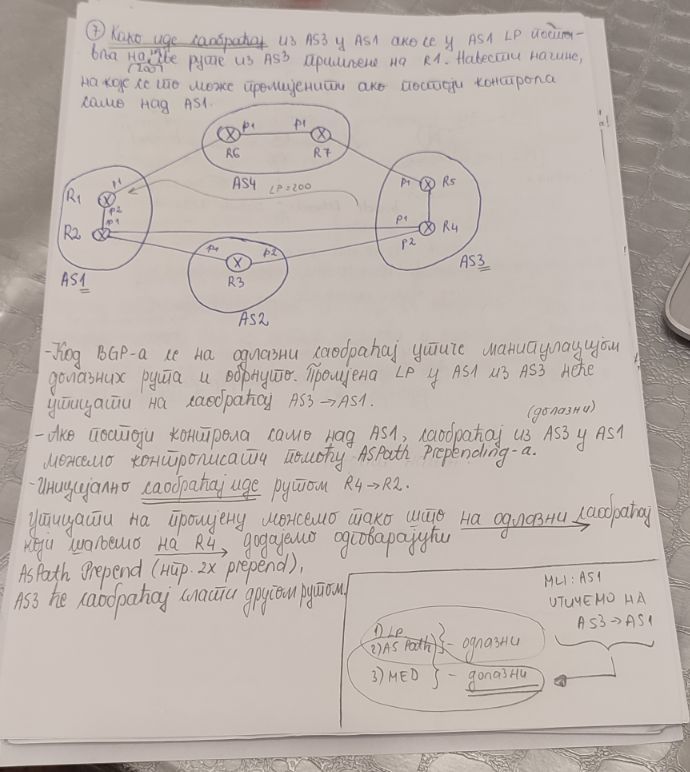 ⑦ Како иде саобраћај из AS3 у AS1 ако се у AS1 LP поста-
вља на 200 за све руте из AS3 примљене на R1. Навести начине,
на које се то може промијенити ако постоји контрола
само над AS1.
p1 p1
R6 R7
AS4
p1 LP=200 p1 R5
R1
p2
p1 p1
R2 R4
p2
p1 p2
R3
AS1 AS3
AS2
-Код BGP-а се на одлазни саобраћај утиче манипулацијом
долазних рута и обрнуто. Промјена LP у AS1 из AS3 неће
утицати на саобраћај AS3→AS1.
(долазни)
-Ако постоји контрола само над AS1, саобраћај из AS3 у AS1
можемо контролисати помоћу ASPath Prepending-а.
-Иницијално саобраћај иде рутом R4→R2.
Утицати на промјену можемо тако што на одлазни саобраћај
који шаљемо на R4 додајемо одговарајући
AsPath Prepend (нпр. 2x prepend),
AS3 ће саобраћај слати другом рутом.
МИ: AS1
УТИЧЕМО НА
AS3→AS1
1) LP
2) AS Path } - одлазни
3) MED } - долазни